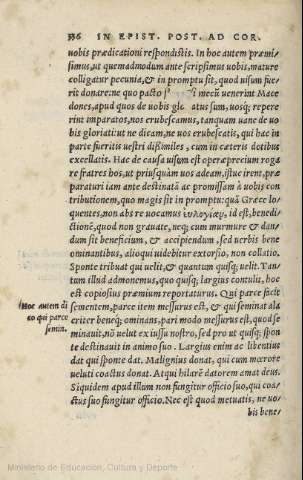 336 IN EPIST. POST. AD COR.
uobis prædicationi respondistis. In hoc autem præmi=
simus, ut quemadmodum ante scripsimus uobis, mature
colligatur pecunia, & in promptu sit, quod uisum fue=
rit donare: ne quo pacto si mecũ uenerint Mace
dones, apud quos de uobis gl atus sum, uosq; repere
rint imparatos, nos erubescamus, tanquam uane de uo
bis gloriati: ut ne dicam, ne uos erubescatis, qui hac in
parte fueritis uestri dißimiles, cum in cæteris dotibus
excellatis. Hac de causa uisum est operæprecium roga
re fratres hos, ut priusquàm uos adeam, istuc irent, præ
paraturi iam ante destinatã ac promissam à uobis con
tributionem, quo magis sit in promptu: quã Græce lo=
quentes, non abs re uocamus ἐυλογίαν, id est, benedi=
ctionẽ, quod non grauate, neq; cum murmure & dan=
dum sit beneficium, & accipiendum, sed uerbis bene
ominantibus, alioqui uidebitur extorsio, non collatio.
Sponte tribuat qui uelit, & quantum quisq; uelit. Tan=
tum illud admonemus, quo quisq; largius contulit, hoc
est copiosius præmium reportaturus. Qui parce facit
Hoc autem di
co qui parce
semin.
sementem, parce item messurus est, & qui seminat ala
criter beneq; ominans, pari modo messurus est, quod se
minauit, nõ uelut ex iussu nostro, sed pro ut quisq; spon
te destinauit in animo suo. Largius enim ac libentius
dat qui sponte dat. Malignius donat, qui cum mœrore
ueluti coactus donat. Atqui hilarẽ datorem amat deus.
Siquidem apud illum non fungitur officio suo, qui coa=
ctus suo fungitur officio. Nec est quod metuatis, ne uo=
bis bene=
Ministerio de Educación, Cultura y Deporte